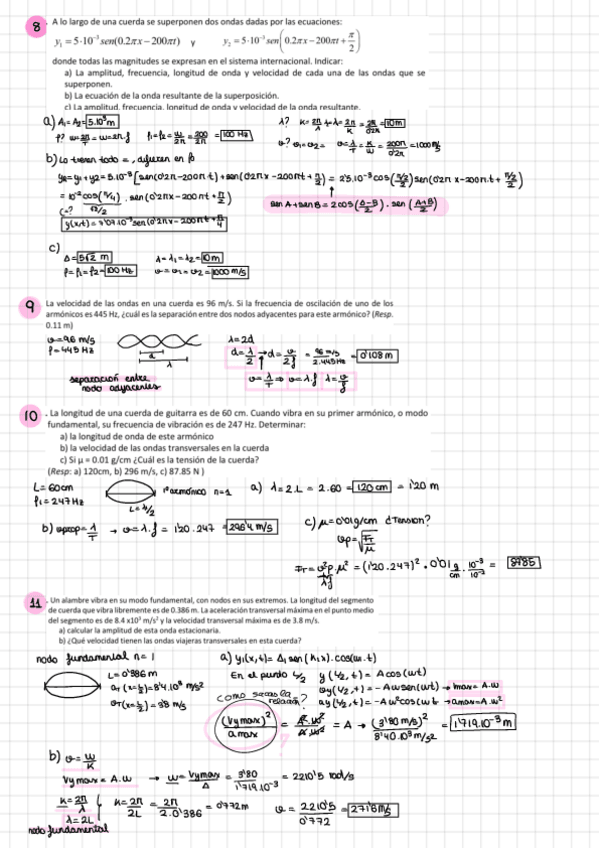 8 . A lo largo de una cuerda se superponen dos ondas dadas por las ecuaciones:
y₁ = 5·10⁻³ sen(0.2πx−200πt) y y₂ = 5·10⁻³ sen(0.2πx−200πt+π/2)
donde todas las magnitudes se expresan en el sistema internacional. Indicar:
a) La amplitud, frecuencia, longitud de onda y velocidad de cada una de las ondas que se
superponen.
b) La ecuación de la onda resultante de la superposición.
c) La amplitud, frecuencia, longitud de onda y velocidad de la onda resultante.
a) A₁=A₂= 5·10⁻³m λ? K=2π/λ → λ=2π/K = 2π/0'2π = 10m
f? w=2π/T → w=2π·f f₁=f₂=w/2π=200π/2π= 100 Hz v? v₁=v₂= v=λ/T=w/K=200π/0'2π=1000m/s
b) Lo tienen todo =, difieren en
= 10⁻² cos(π/4) · sen(0'2πx−200πt+π/2/2)
√2/2
sen A + sen B = 2cos(A−B/2) · sen(A+B/2)
y(x,t)=7'07·10⁻³sen(0'2πx−200πt+π/4
c)
A= 5√2 m λ=λ₁=λ₂= 10m
f=f₁=f₂= 100 Hz v=v₁=v₂= 1000 m/s
9 La velocidad de las ondas en una cuerda es 96 m/s. Si la frecuencia de oscilación de uno de los
armónicos es 445 Hz, ¿cuál es la separación entre dos nodos adyacentes para este armónico? (Resp.
0.11 m)
v=96 m/s λ=2d
f=445Hz d=λ/2 → d=v/2f = 96 m/s/2·445Hz = 0'108m
d
λ
separación entre v=λ/T ⇒ v=λ·f λ=v/f
nodo adyacentes
10 . La longitud de una cuerda de guitarra es de 60 cm. Cuando vibra en su primer armónico, o modo
fundamental, su frecuencia de vibración es de 247 Hz. Determinar:
a) la longitud de onda de este armónico
b) la velocidad de las ondas transversales en la cuerda
c) Si μ = 0.01 g/cm ¿Cuál es la tensión de la cuerda?
(Resp: a) 120cm, b) 296 m/s, c) 87.85 N )
L=60cm 1ᵉʳ armónico n=1 a) λ=2·L = 2·60 = 120 cm = 1'20 m
f₁=247Hz L=λ/2
b) vprop=λ/T → v=λ·f = 1'20·247= 296'4 m/s c) μ=0'01g/cm ¿Tension?
vp=√(FT/μ)
11 . Un alambre vibra en su modo fundamental, con nodos en sus extremos. La longitud del segmento
de cuerda que vibra libremente es de 0.386 m. La aceleración transversal máxima en el punto medio
del segmento es de 8.4 x10³ m/s² y la velocidad transversal máxima es de 3.8 m/s.
a) calcular la amplitud de esta onda estacionaria.
b) ¿Qué velocidad tienen las ondas viajeras transversales en esta cuerda?
nodo fundamental n=1 a) y₁(x,t)= A₁ sen(K₁x)·cos(w₁·t)
L=0'386m En el punto L/2 y(L/2,t) = A cos(wt)
vy(L/2,t) = −A w sen(wt) → vmax=A·w
ay(L/2,t) = −A w² cos(wt) → amax=A·w²
como sacas la relación?
(Vymax)²/amax = A²·w²/A·w² = A → (3'80 m/s)²/8'40·10³m/s² = 1'719·10⁻³m
b) v=w/K
Vymax=A·w → w=Vymax/A = 3'80/1'719·10⁻³ = 2210'5 rad/s
K=2π/λ K=2π/2L = 2π/2·0'386 = v=2210'5/
λ=2L
nodo fundamental